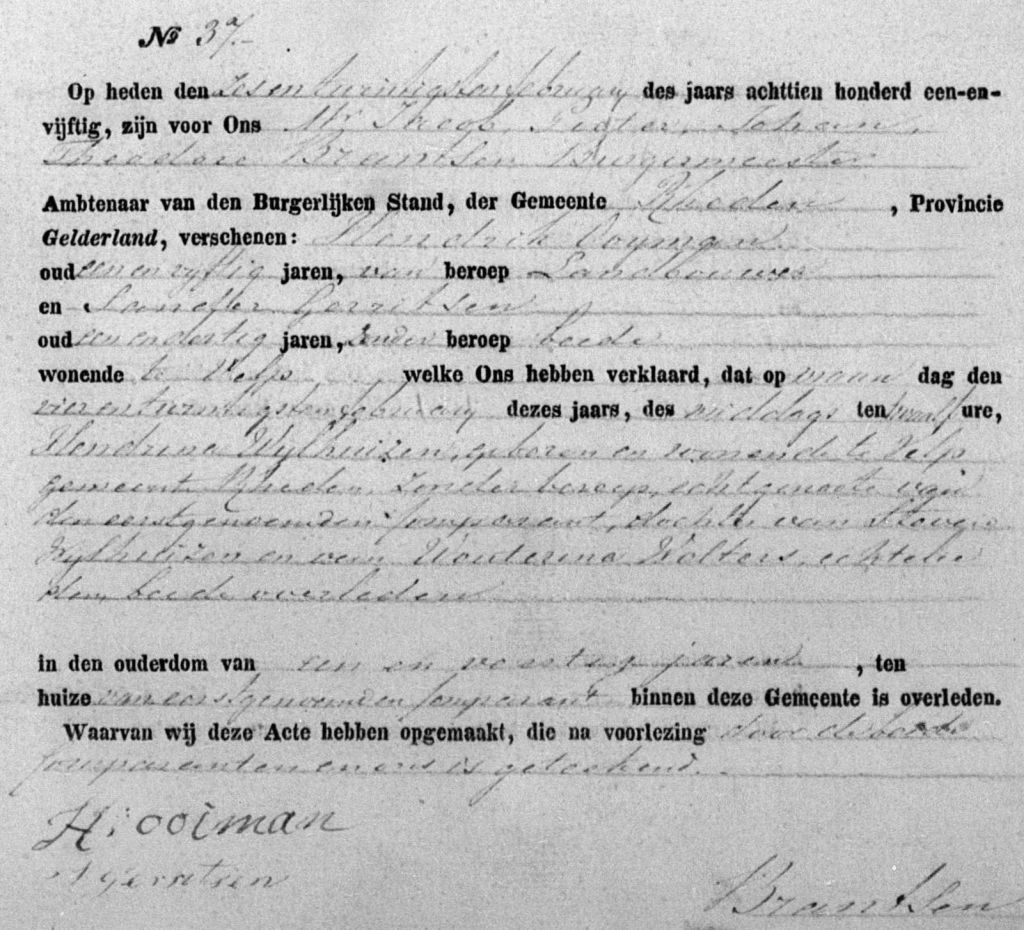 № 37.
Op heden den zesentwintigsten february des jaars achttien honderd een-en-
vijftig, zijn voor Ons Mr. Jacob Pieter Johan
Theodore Brantsen Burgemeester
Ambtenaar van den Burgerlijken Stand, der Gemeente Rheden, Provincie
Gelderland, verschenen: Hendrik Ooyman
oud een en vyftig jaren, van beroep Landbouwer
en Gerritsen
oud een en dertig jaren, zonder beroep beide
wonende te Velp welke Ons hebben verklaard, dat op maan dag den
vierentwintigsten february dezes jaars, des middags ten twaalf ure,
Hendrina Wylhuizen, geboren en wonende te Velp
gemeente Rheden, zonder beroep, echtgenoote van
den eerstgenoemden Comparant, dochter van Steven
Wylhuizen en van Wouterina Wolters, echtelie
den, beide overleden
in den ouderdom van een en veertig jaren, ten
huize van eerstgenoemden Comparant binnen deze Gemeente is overleden.
Waarvan wij deze Acte hebben opgemaakt, die na voorlezing door de beide
Comparanten en ons is geteekend.
H. ooiman
Gerritsen
Brantsen